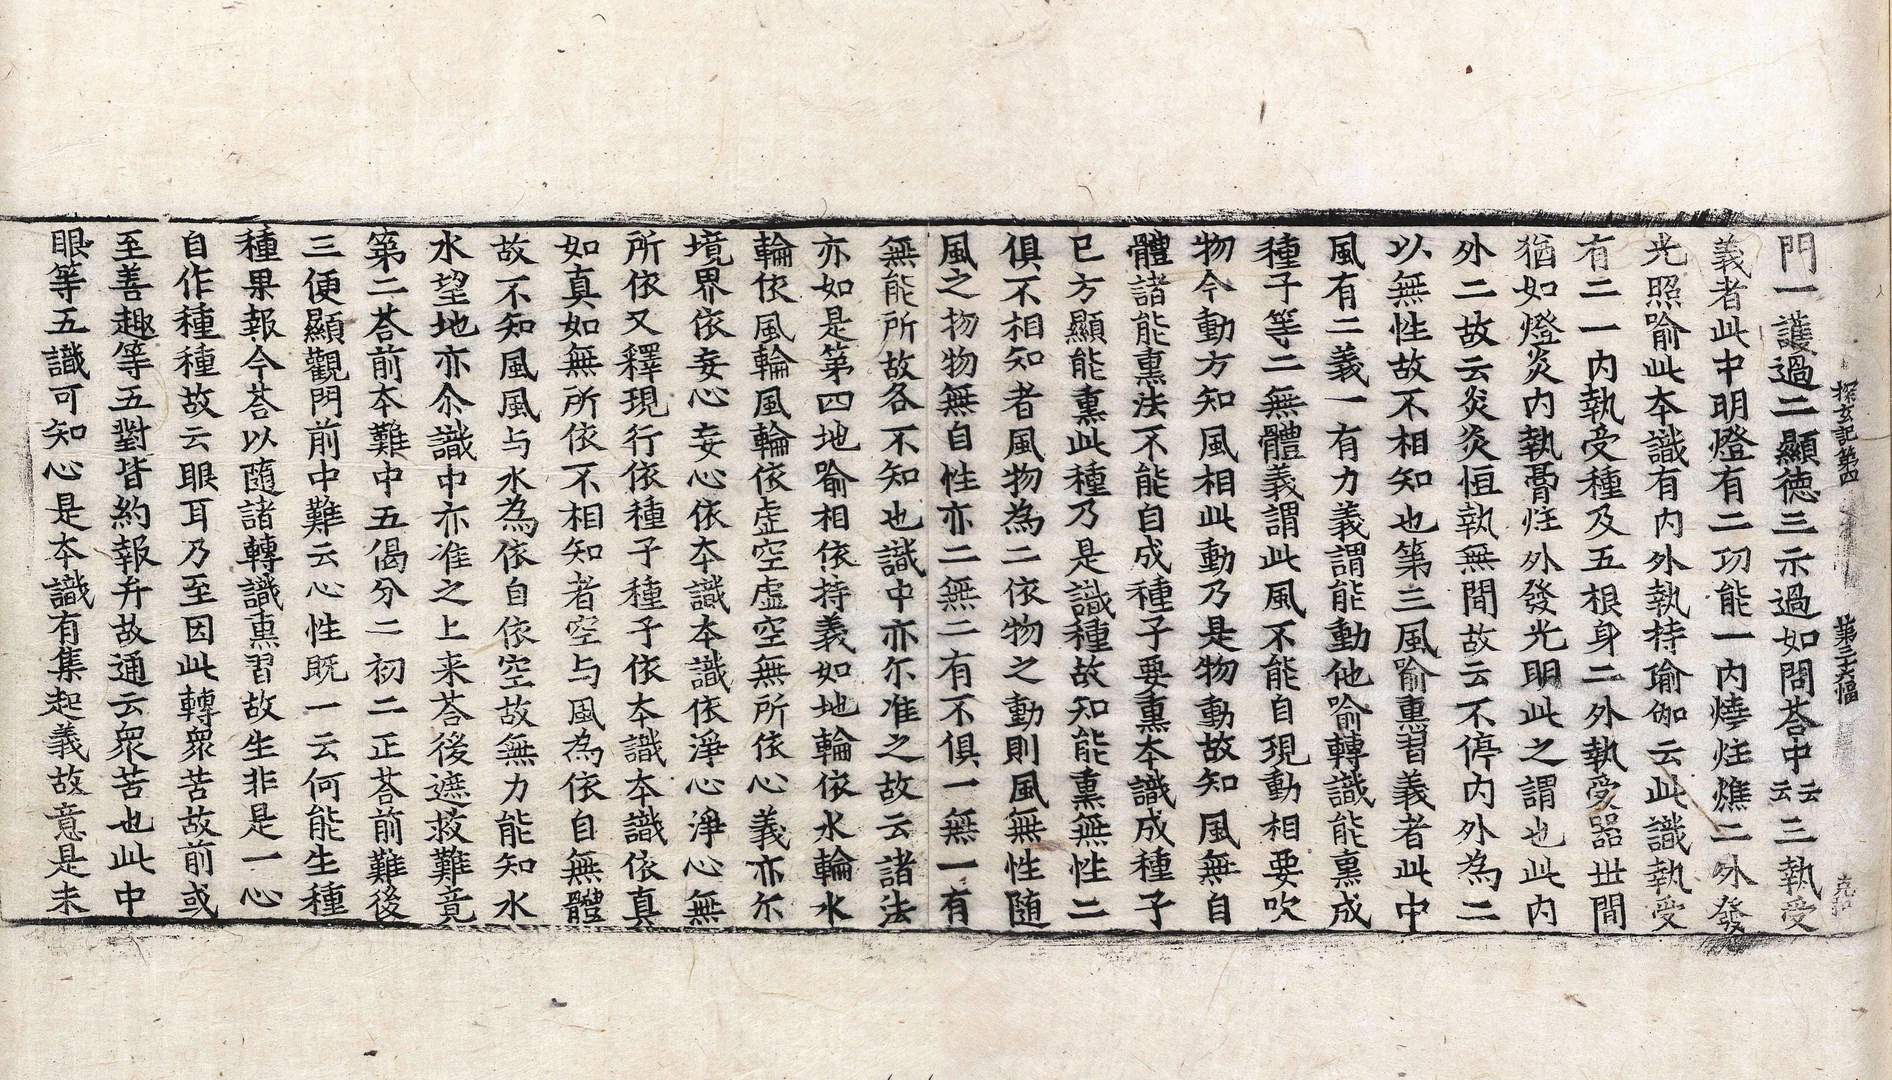 探玄記第四 第三十六幅
門一護過二顯徳三示過如問荅中云云三執受
義者此中明燈有二功能一内燒炷燋二外發
光照喻此本識有内外執持瑜伽云此識執受
有二一内執受種及五根身二外執受器世間
猶如燈炎内執膏炷外發光明此之謂也此内
外二故云炎炎恒執無間故云不停内外為二
以無性故不相知也第三風喻熏習義者此中
風有二義一有力義謂能動他喻轉識能熏成
種子等二無體義謂此風不能自現動相要吹
物今動方知風相此動乃是物動故知風無自
體諸能熏法不能自成種子要熏本識成種子
已方顯能熏此種乃是識種故知能熏無性二
俱不相知者風物為二依物之動則風無性随
風之物物無自性亦二無二有不俱一無一有
無能所故各不知也識中亦尓准之故云諸法
亦如是第四地喻相依持義如地輪依水輪水
輪依風輪風輪依虛空虛空無所依心義亦尓
境界依妄心妄心依本識本識依淨心淨心無
所依又釋現行依種子種子依本識本識依真
如真如無所依不相知者空与風為依自無體
故不知風風与水為依自依空故無力能知水
水望地亦尒識中亦准之上来荅後遮救難竟
第二荅前本難中五偈分二初二正荅前難後
三便顯觀門前中難云心性既一云何能生種
種果報今荅以随諸轉識熏習故生非是一心
自作種種故云眼耳乃至因此轉衆苦故前或
至善趣等五對皆約報弁故通云衆苦也此中
眼等五識可知心是本識有集起義故意是末